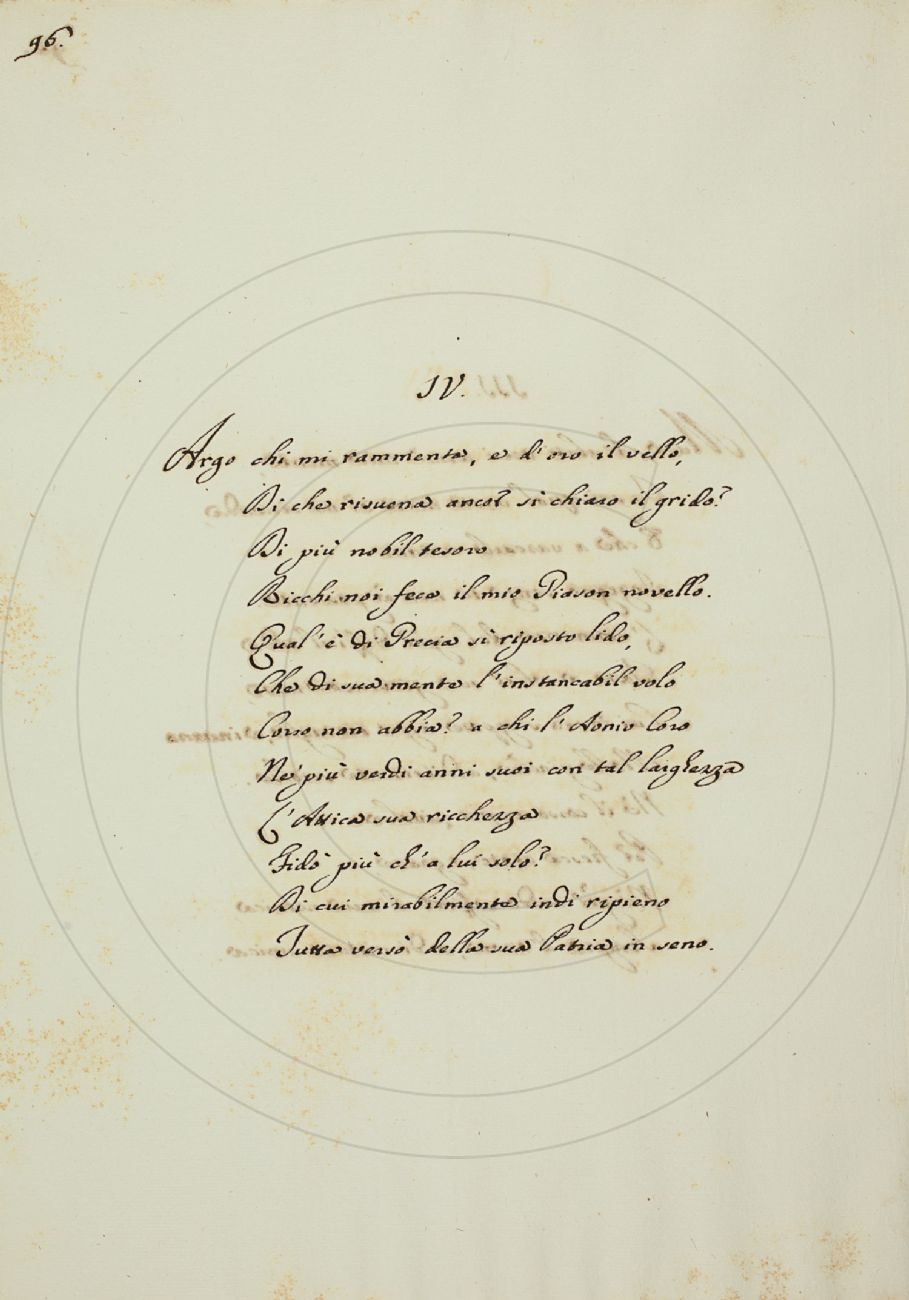 96.
IV.
Argo chi mi rammenta, e d'oro il vello,
Di che risuona ancor sì chiaro il grido?
Di più nobil tesoro
Ricchi noi feca il mio Giason novello.
Qual'è di Grecia sì riposto lido,
Che di sua mente l'instancabil volo
Corso non abbia? a chi l'Aonio Coro
Ne' più verdi anni suoi con tal larghezza
L'Attica sua ricchezza
Fidò più ch'a lui solo?
Di cui mirabilmente indi ripieno
Tutta versò della sua Patria in seno.